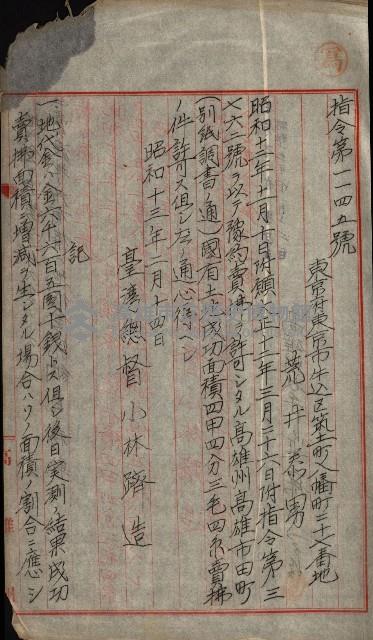 寫
指令第一一四五號
東京府東京市牛込区筑土町八幡町二十八番地
荒井泰男
昭和十二年十一月十日附願大正十二年三月三十六日附指令第三
七六二號ヲ以テ豫約賣渡ヲ許可シタル高雄州高雄市田町
(別紙調書ノ通)國有土地成功面積四甲四分三毛四糸賣拂
ノ件許可ス但シ左ノ通心得ヘシ
昭和十三年二月十四日
臺灣總督小林躋造
記
一、地代金ハ金六千六百五圓十錢トス但シ後日実測ノ結果成功
賣拂面積ニ増減ヲ生シタル場合ハソノ面積ノ割合ニ應シ